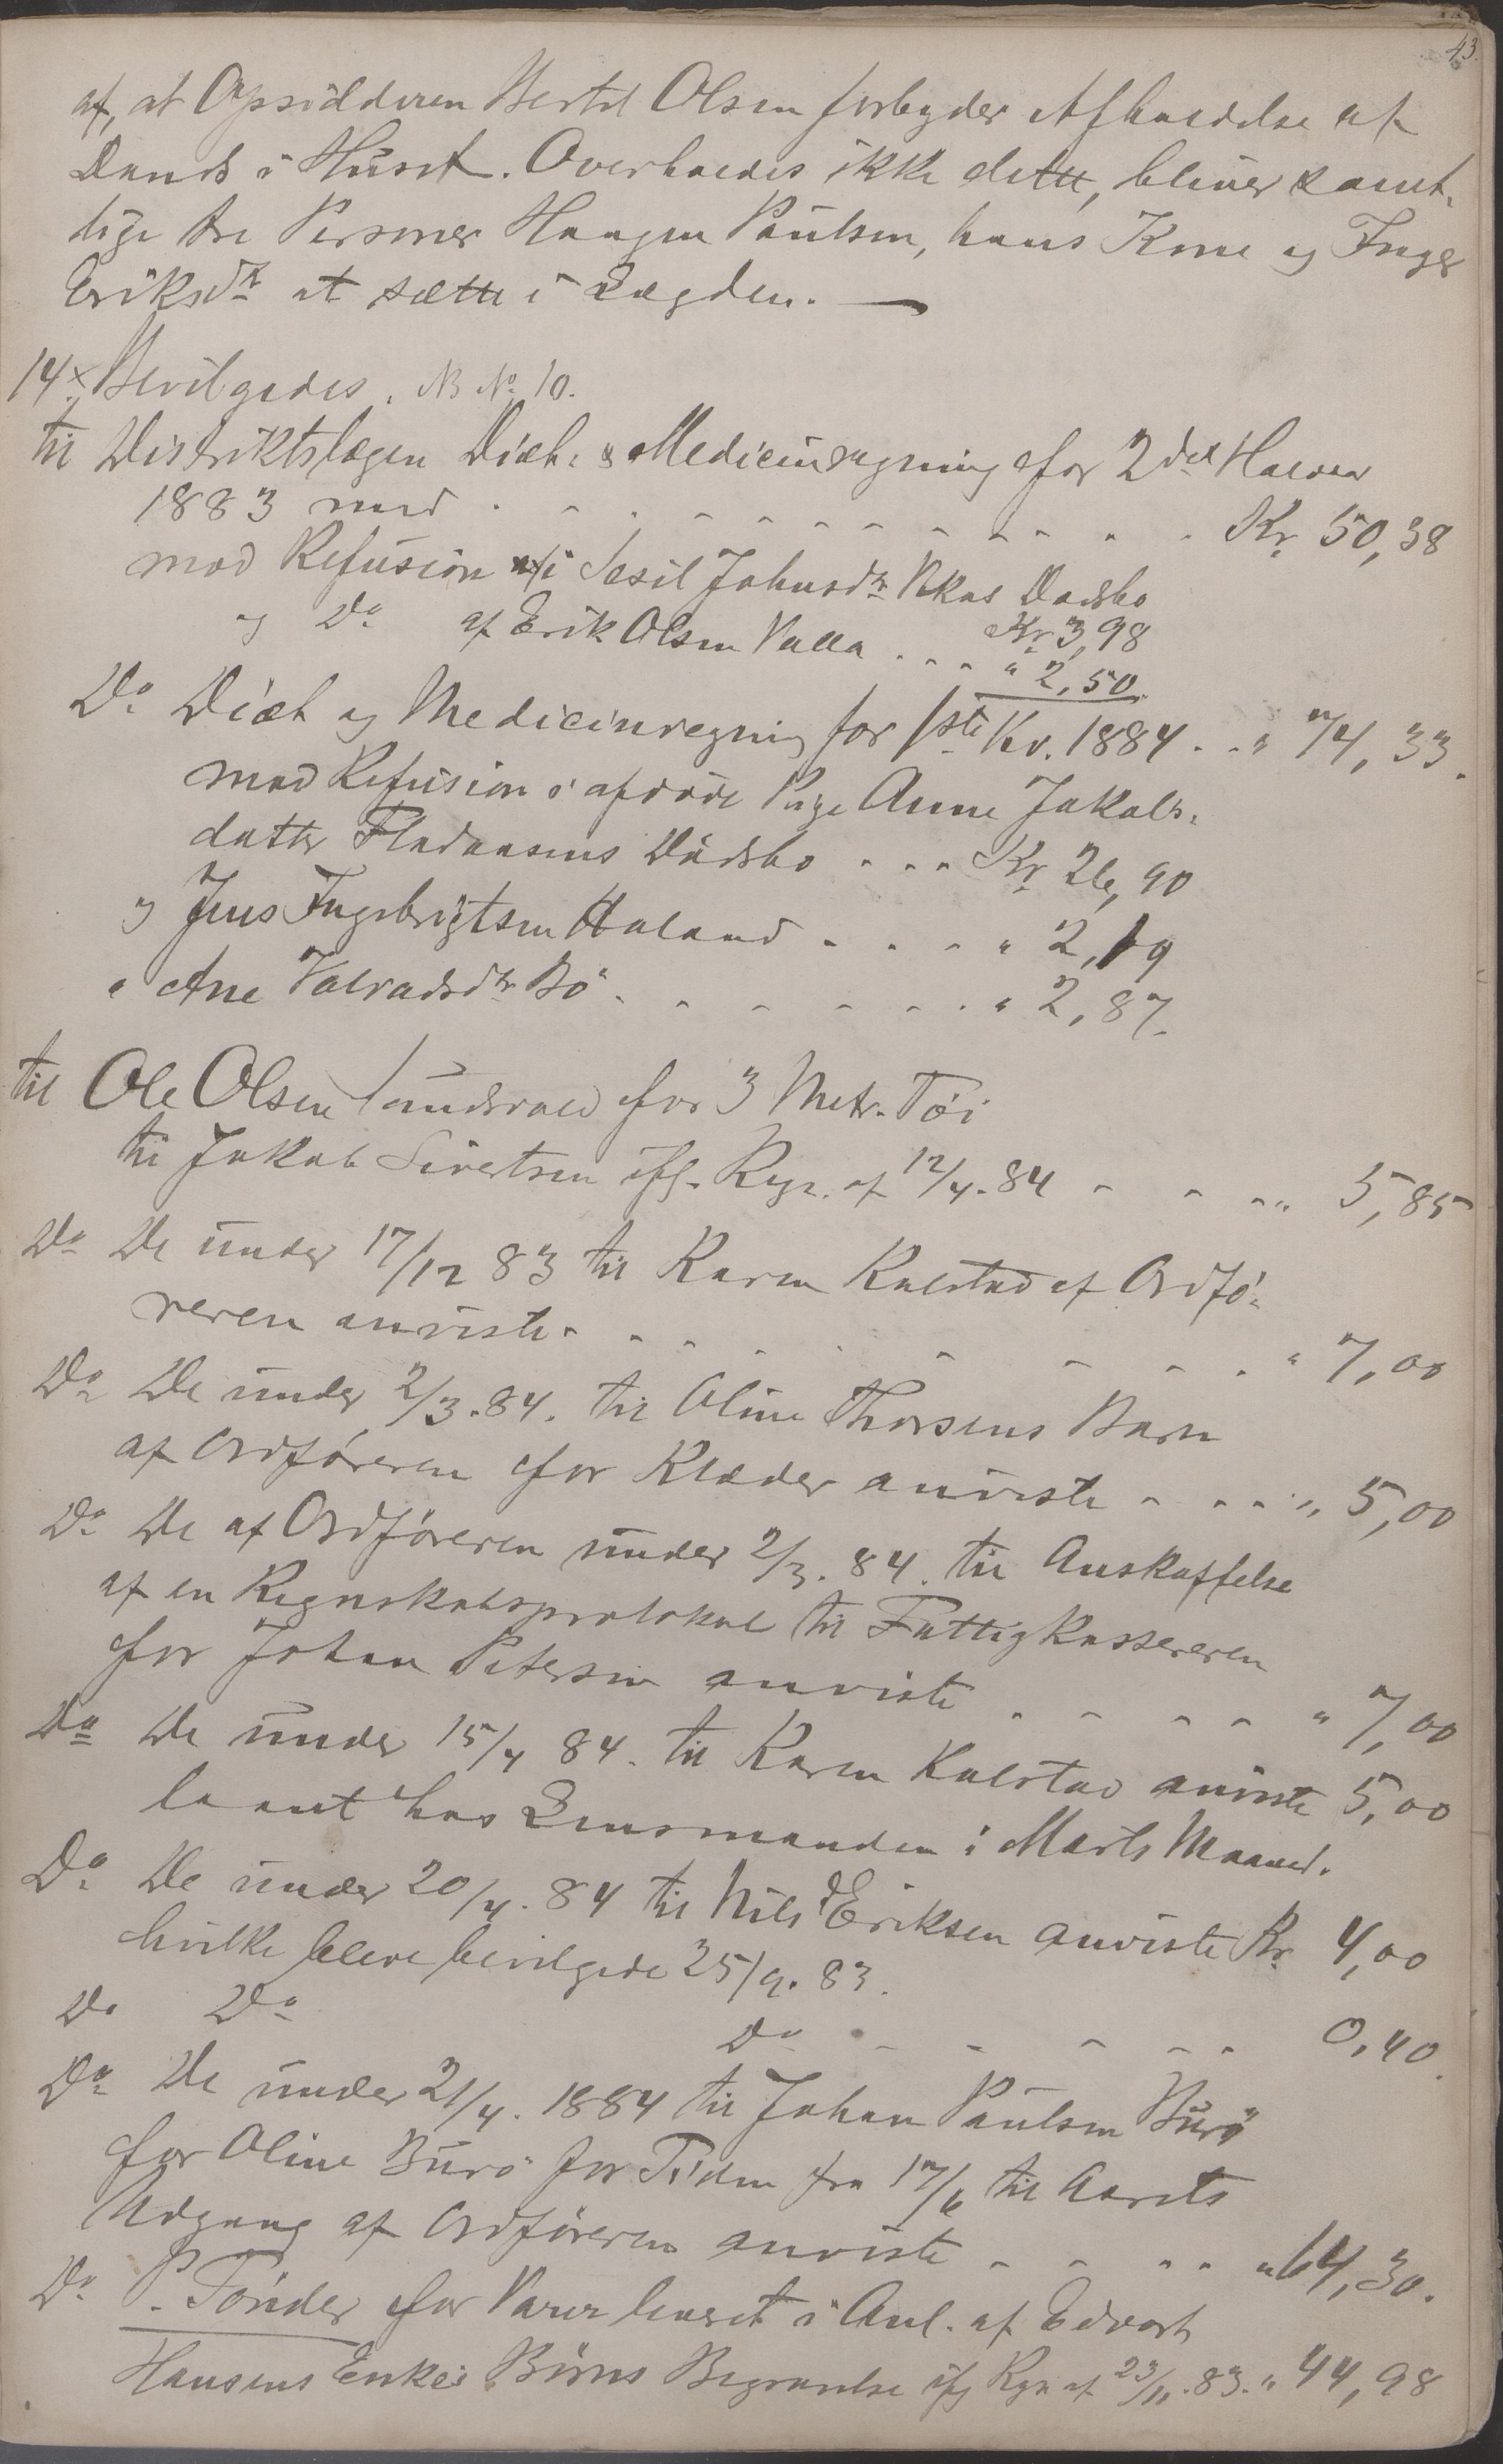 43.
af, at Opsidderen Bertel Olsen forbyder Afholdelse af
Dands i Huset. Overholdes ikke dette, bliver samt-
lige tre Personer Haagen Paulsen, hans Kone og Inger
Eriksdtr at sætte i Lægden. —
14 × Bevilgedes. NB No 10.
til Distriktslægen Diæt- & Medicinregning for 2det Halvaar
1883 med . . . . . . . . . . . . Kr. 50,38
mod Refusion i Sesil Johnsdtr Vikas Dødsbo
Kr 3,98
og Do af Erik Olsen Valla . . . " 2,50
Do Diæt og Medicinregning for 1ste Kv. 1884 . . " 74,33.
mod Refusion i afdøde Pige Anne Jakobs-
datter Fladaasens Dødsbo . . . Kr 26,90
og Jens Ingebrigtsen Haland . . . . " 2,19
" Ane Valradsdtr Bö . . . . . . . " 2,87.
til Ole Olsen Sundsvold for 3 Metr. Töi
til Jakob Sivertsen ifg. Regn. af 12/4-84 - - - " 5,85
Do De under 17/12 83 til Karen Kalstad af Ordfö-
reren anviste . . . . . . . . . " 7,00
Do De under 2/3.84. til Oline Thorsens Barn
af Ordföreren for Klæder anviste - . . . " 5,00
Do De af Ordföreren under 2/3.84. til Anskaffelse
af en Regnskabsprotokol til Fattigkassereren
for Johan Petersen anviste . . . . " 7,00
Do De under 15/4 84. til Karen Kalstad anviste 5,00
laant hos Lensmanden i Marts Maaned.
Do De under 20/4.84 til Nils Eriksen anviste Kr. 4,00
hvilke bleve bevilgede 25/9.83.
Do Do Do - - - - - 0,40.
Do De under 21/4.1884 til Johan Paulsen Burö
for Oline Burö for Tiden fra 17/6 til Aarets
Udgang af Ordföreren anviste - - . . " 64,30.
Do P. Tönder for Varer leveret i Anl. af Edvart
Hansens Enkes Börns Begravelse ifg Regn af 23/11.83. " 44,98